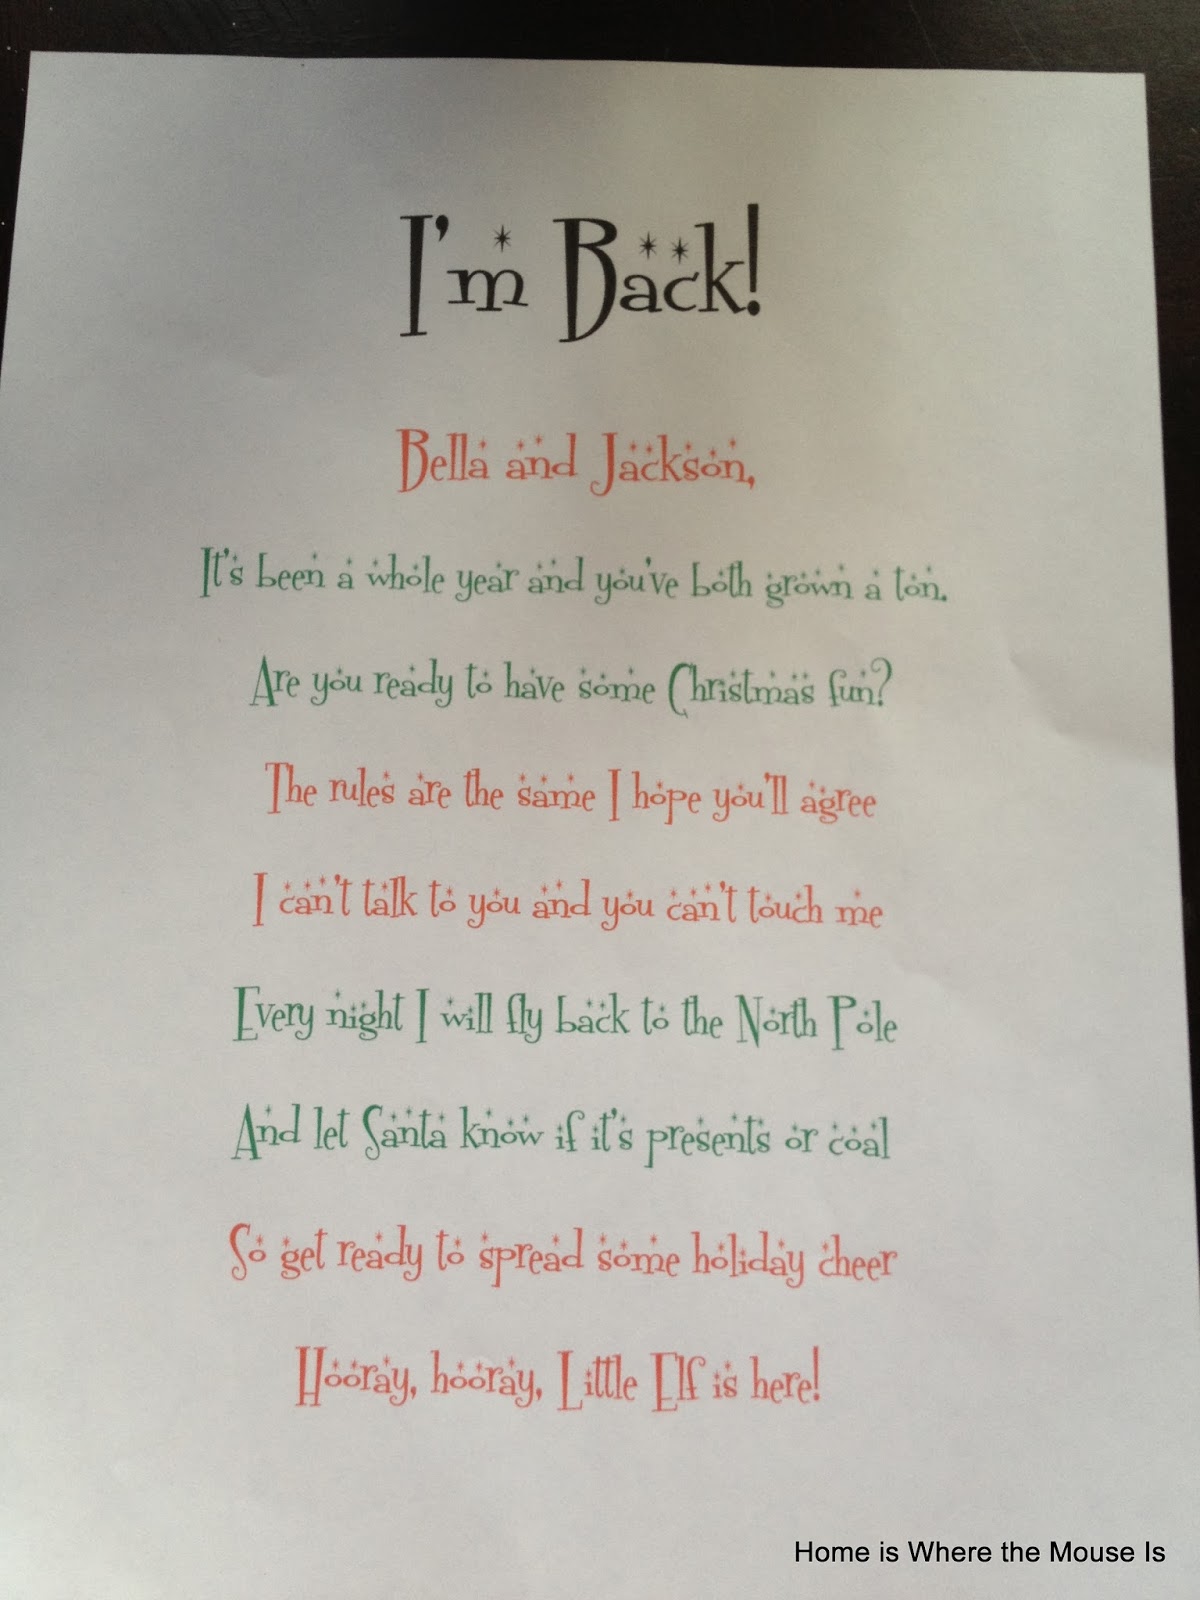 I'm Back!
Bella and Jackson,
It's been a whole year and you've both grown a ton.
Are you ready to have some Christmas fun?
The rules are the same I hope you'll agree
I can't talk to you and you can't touch me
Every night I will fly back to the North Pole
And let Santa know if it's presents or coal
So get ready to spread some holiday cheer
Hooray, hooray, Little Elf is here!
Home is Where the Mouse Is